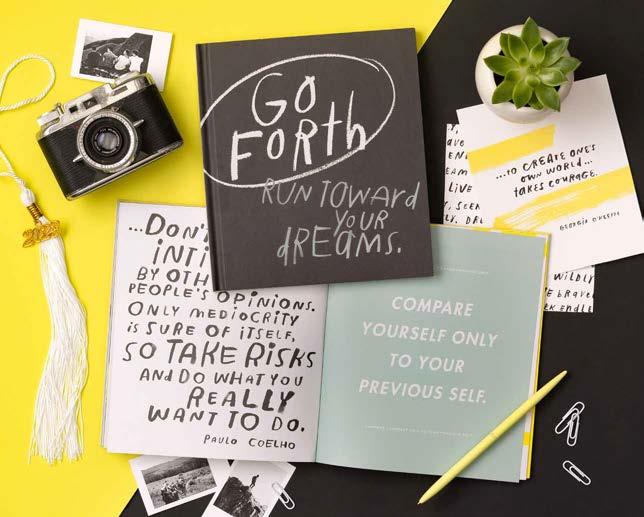 GO
FORTH
RUN TOWARD
YOUR
DREAMS.
...TO CREATE ONE'S
OWN WORLD...
TAKES COURAGE.
GEORGIA O'KEEFFE
LIVE
WILDLY
...DON'T
INTI
BY OTH
PEOPLE'S OPINIONS.
ONLY MEDIOCRITY
IS SURE OF ITSELF,
SO TAKE RISKS
AND DO WHAT YOU
REALLY
WANT TO DO.
PAULO COELHO
COMPARE
YOURSELF ONLY
TO YOUR
PREVIOUS SELF.